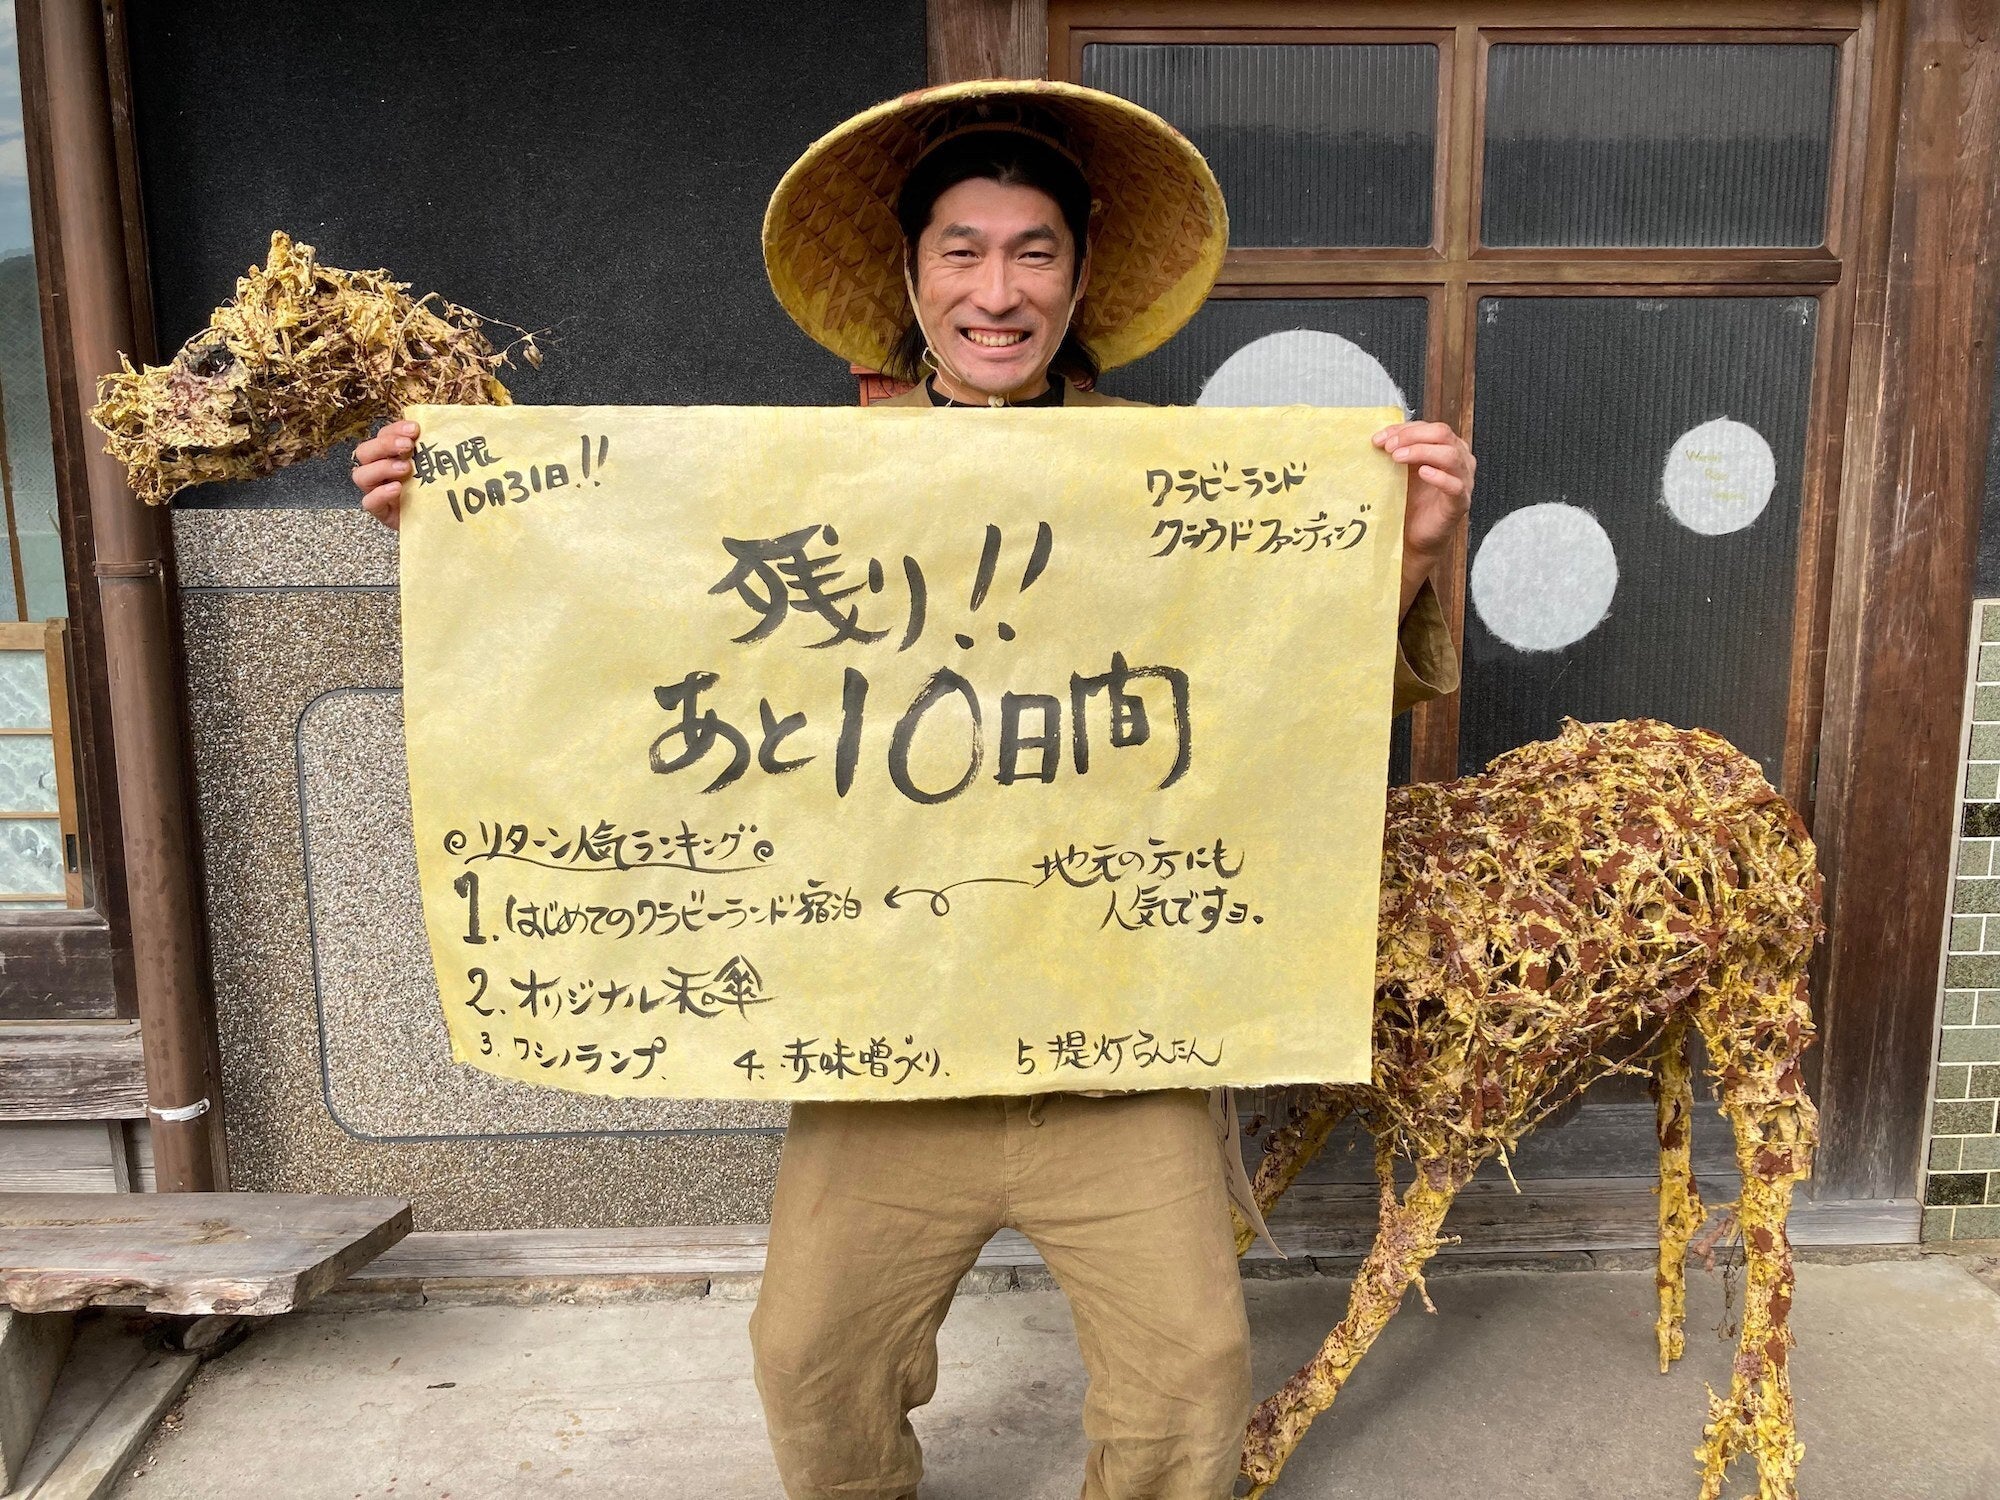 期限
10月31日!!
ワラビーランド
クラウドファンディング
残り!!
あと10日間
リターン人気ランキング
1. はじめてのワラビーランド宿泊
地元の方にも
人気ですヨ。
2. オリジナル天の傘
3. ワシノランプ
4. 赤味噌づくり
5. 提灯らんたん